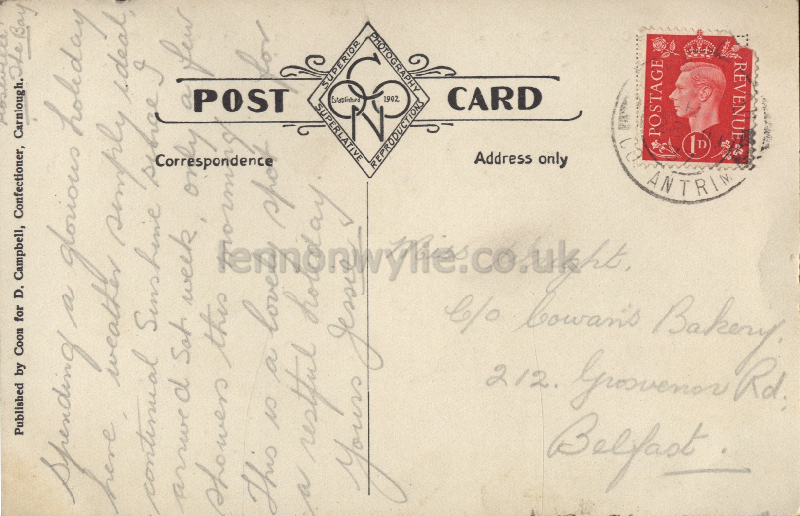 POST CARD
SUPERIOR PHOTOGRAPHY
SUPERLATIVE REPRODUCTIONS
C
Established 1902
N
Correspondence
Address only
POSTAGE REVENUE
1D
CO. ANTRIM
Published by Coon for D. Campbell, Confectioner, Carnlough.
The Bay
Spending a glorious holiday
here, weather simply ideal,
continual Sunshine since I
arrived Sat. week, only a few
showers this morning.
This is a lovely spot for
a restful holiday.
Yours Jessie
Miss
C/o Cowan's Bakery,
212. Grosvenor Rd.
Belfast.
lennonwylie.co.uk